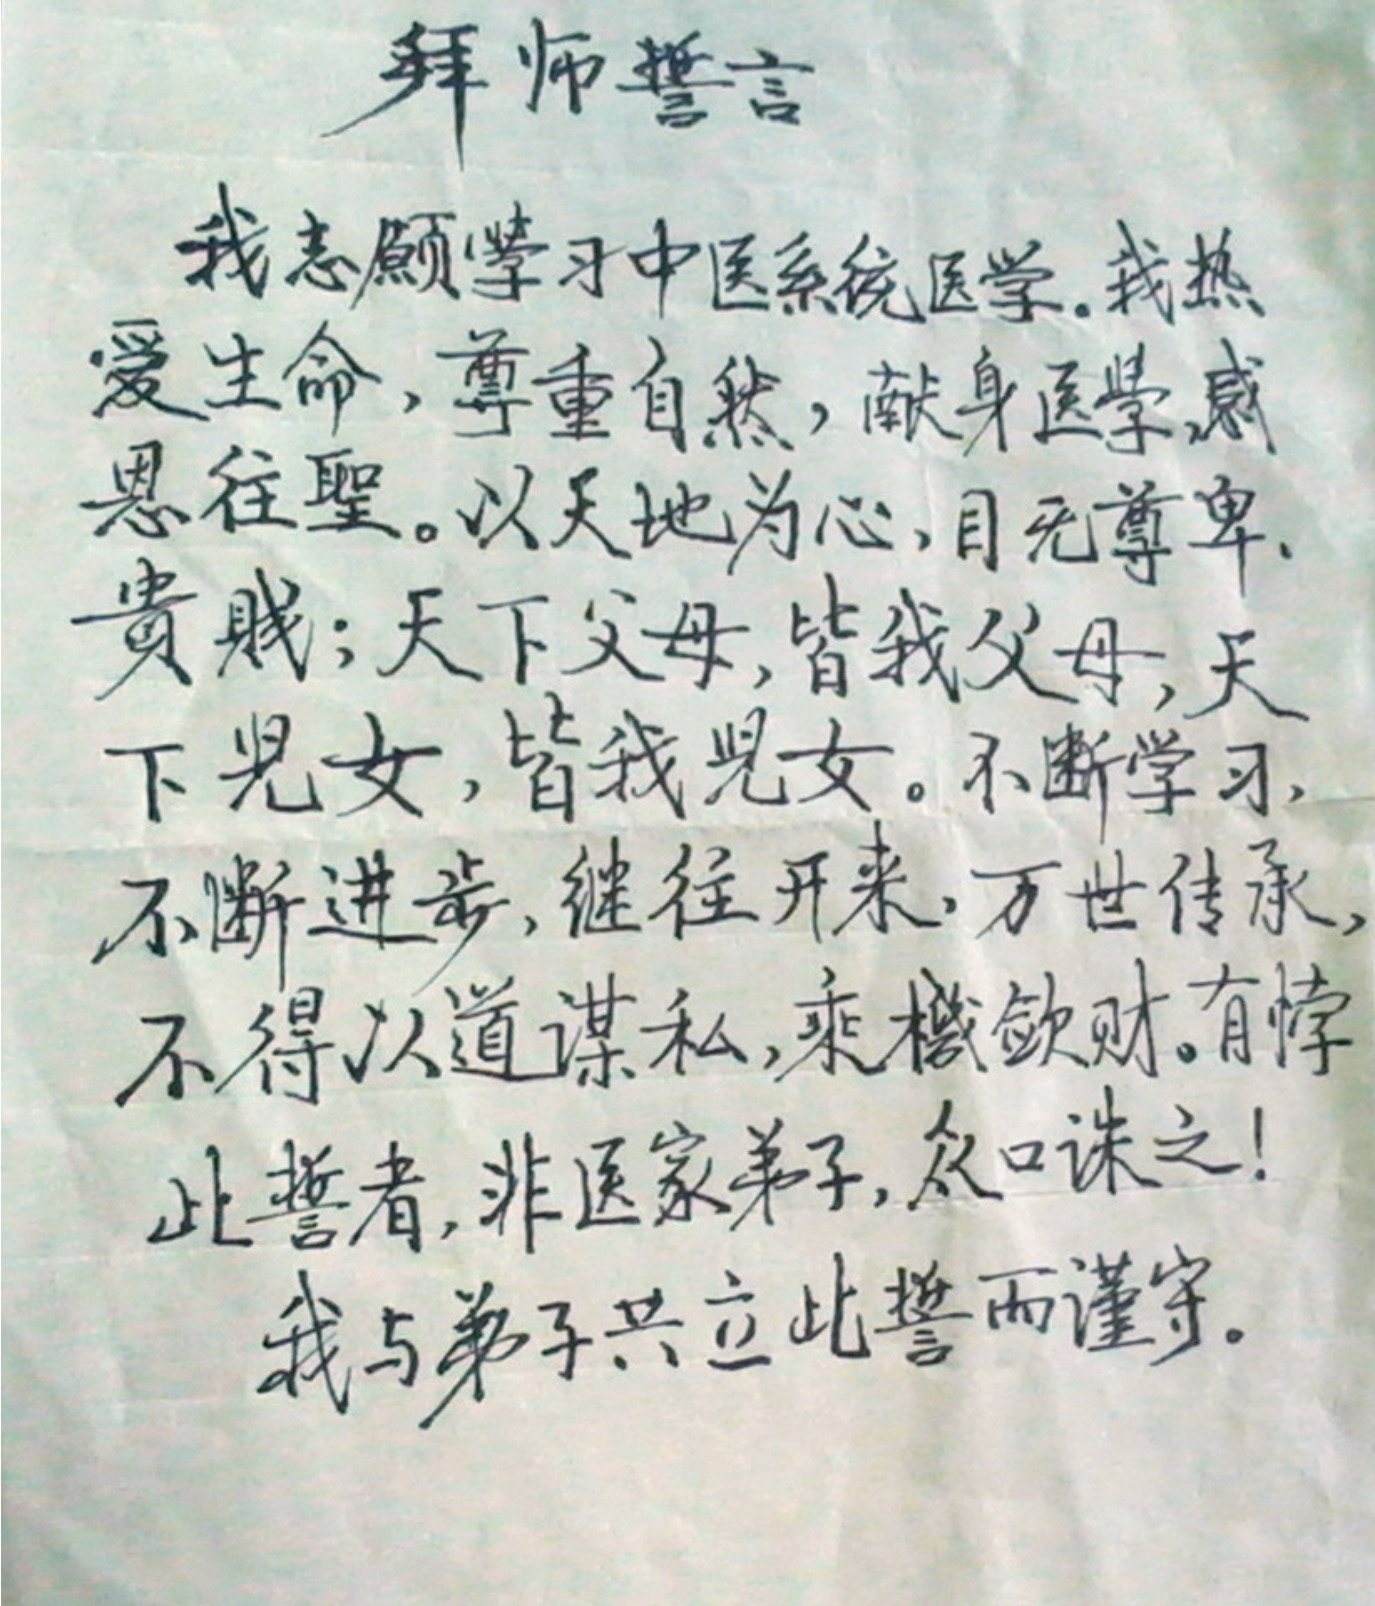 拜师誓言
我志願學习中医系统医学。我热
爱生命，尊重自然，献身医學，感
恩往聖。以天地为心，目无尊卑、
贵贱；天下父母，皆我父母，天
下児女，皆我児女。不断学习，
不断进步，继往开来，万世传承，
不得以道谋私，乘機敛财。有悖
此誓者，非医家弟子，众口诛之！
我与弟子共立此誓而谨守。